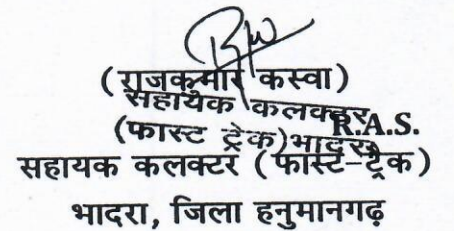 (राजकुमार कस्वा)
सहायक कलक्टर
(फास्ट ट्रेक) भादरा
R.A.S.
सहायक कलक्टर (फास्ट-ट्रैक)
भादरा, जिला हनुमानगढ़